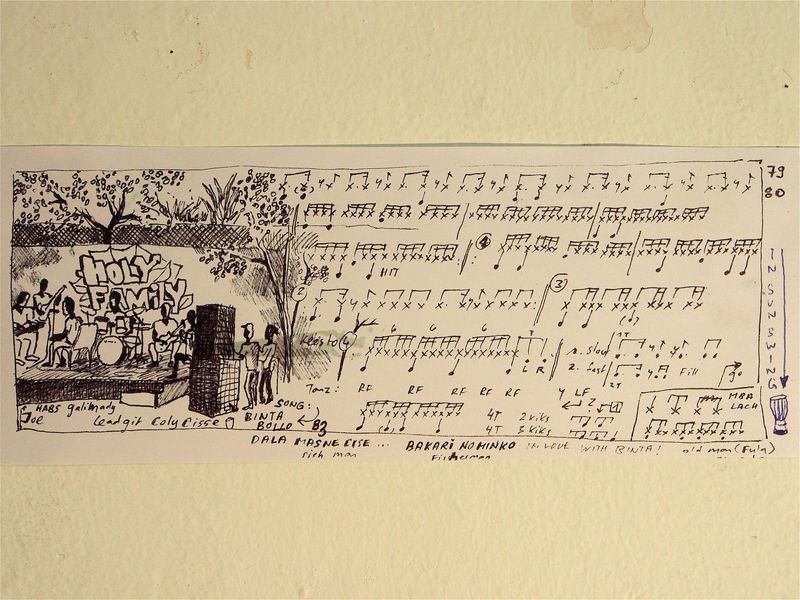 79
80
HOLY
FAMILY
HIT
1
2
3
4
6 6 6
L R
1. Slow
2. fast
Fill
go
IN SUNSWING
Tanz: RF RF RF RF RF LF
4T 2 kiks
4T 3 kiks
MBA
LACH
HABS galimady
Joe
Leadgit Coly Cisse
SONG:
BINTA
BOLLO ← 83
DALA MASNE CISE ... BAKARI NOMINKO IN LOVE WITH BINTA! old man (Fula)
rich man Fischerman